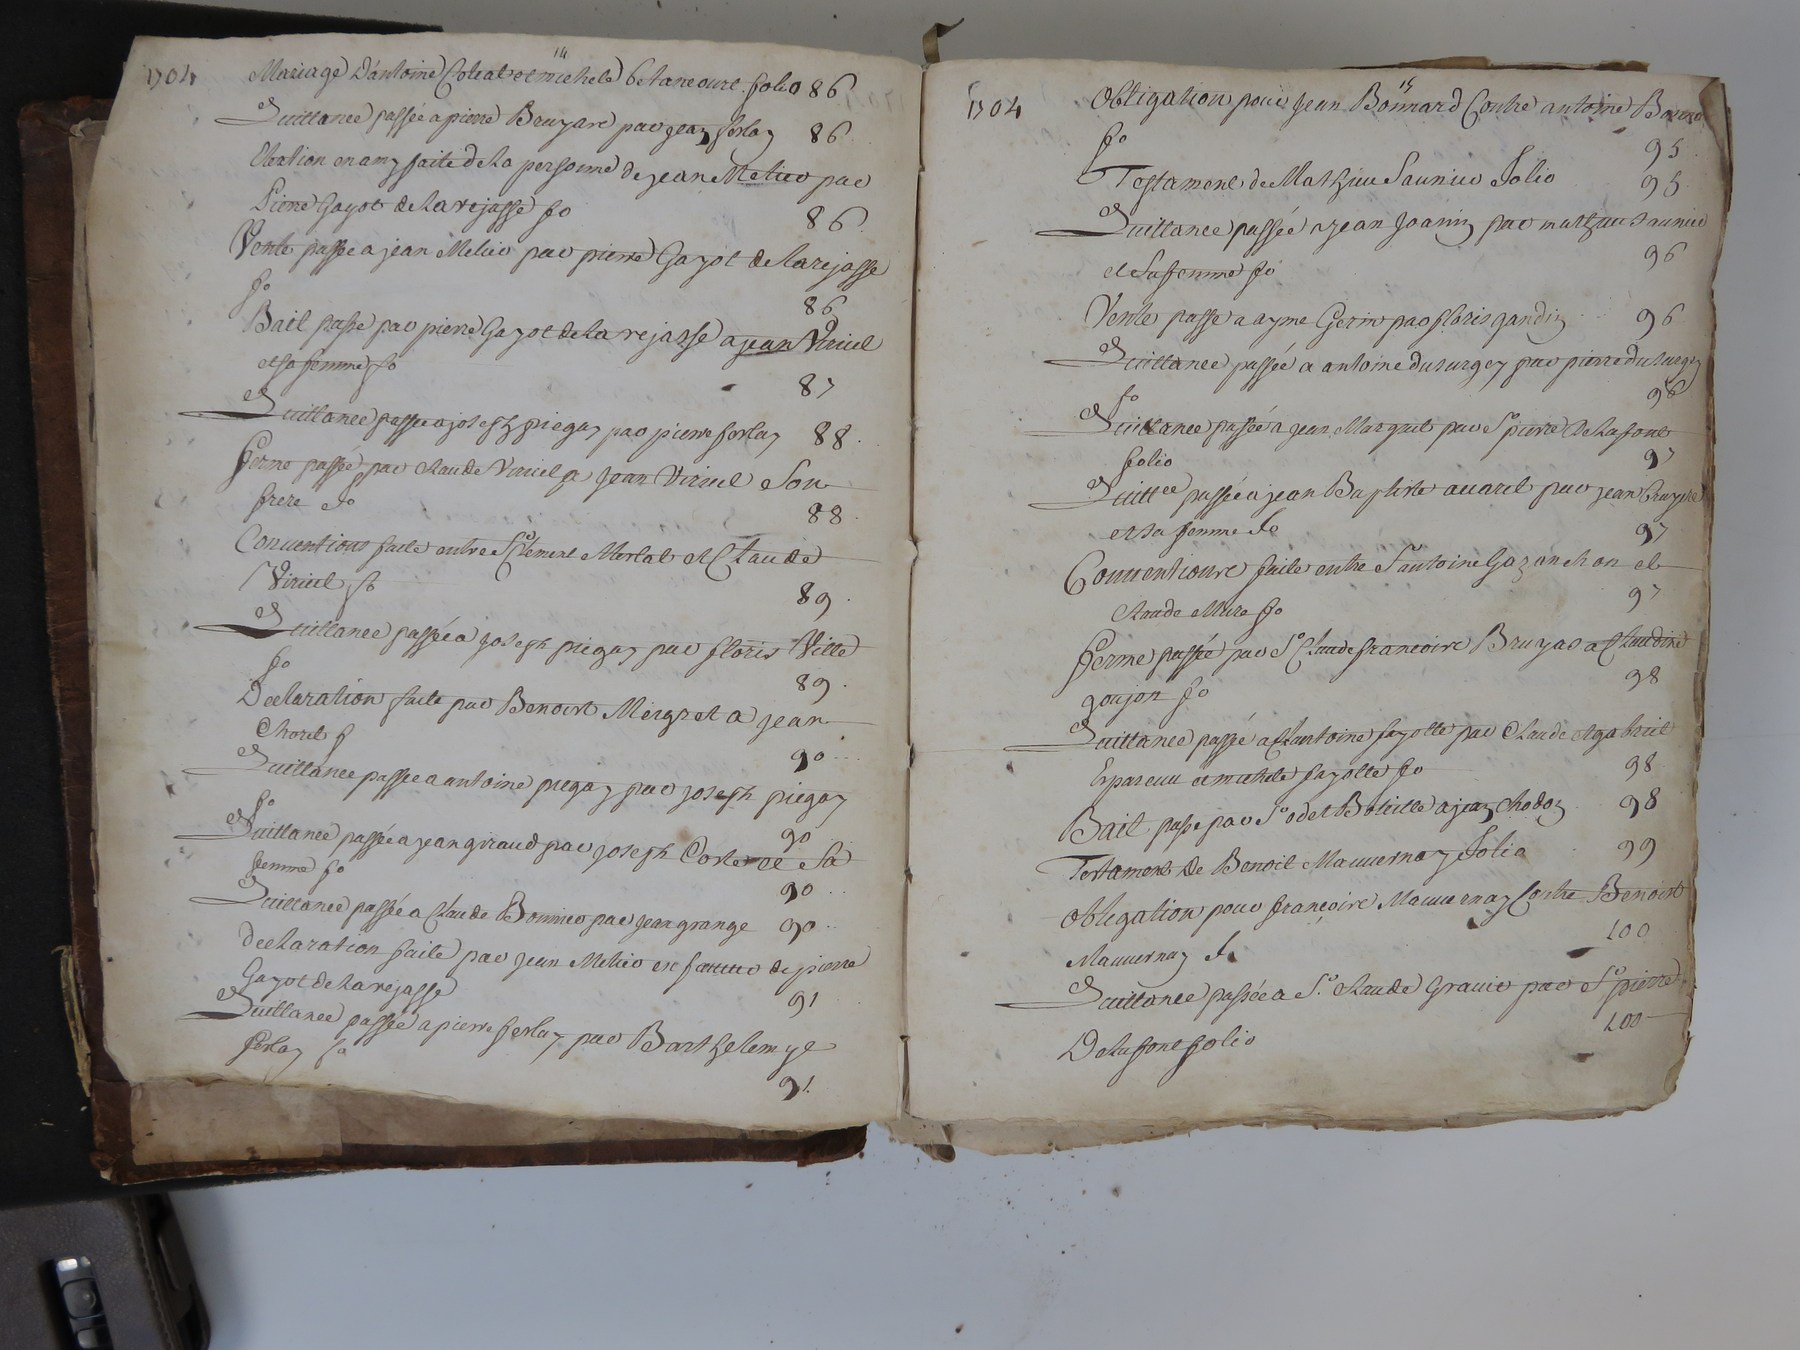 14
1704
Mariage D'antoine et michele betancourt folio 86
Quittance passée a pierre Bruyare par jean ferlay 86
Election en amy faite de La personne de jean Melier par
Pierre Gayot de Larejasse fo 86
Vente passée a jean Melier par pierre Gayot de Larejasse
fo 86
Bail passé par pierre Gayot de La rejasse a jean Viriel
et sa femme fo 87
Quittance passée a joseph piegay par pierre ferlay 88
ferme passée par Claude Viriel a jean Viriel Son
frere fo 88
Conventions faite entre Sr Clement Merlat et Claude
Viriel fo 89
Quittance passée a joseph piegay par floris Ville
fo 89
Declaration faite par Benoist a jean
Chorel f 90
Quittance passée a antoine piegay par joseph piegay
fo 90
Quittance passée a jean giraud par joseph Coste et Sa
femme fo 90
Quittance passée a Claude Bonnier par jean grange 90
declaration faite par jean Melier en faveur de pierre
Gayot de La rejasse 91
Quittance passée a pierre ferlay par Barthelemye
ferlay fo 91
15
1704
Obligation pour jean Bonnard Contre antoine
fo 95
Testament de Mathieu Saunier folio 95
Quittance passée a jean Joanin par mathieu Saunier
et Sa femme fo 96
Vente passé a ayme Gerin par floris gandin 96
Quittance passée a antoine Dusurgey par pierre Dusurgey
fo 96
Quittance passée a jean Marquit par Sr pierre De Lafont
folio 97
Quittce passée a jean Baptiste avaril par jean bruyere
et sa femme fo 97
Conventions faite entre Sr antoine Gazanchon et
Claude Mure fo 97
ferme passée par Sr Claude francoise Bruyas a Claudine
goujon fo 98
Quittance passée a antoine fayolle par Claude et gabriel
et michele fayolle fo 98
Bail passé par Sr odet Boieille a jean Chodon 98
Testament de Benoit Mauvernay folio 99
Obligation pour françoise Mauvernay Contre Benoist
Mauvernay fo 100
Quittance passée a Sr Claude Gravier par Sr pierre
De Lafont folio 100